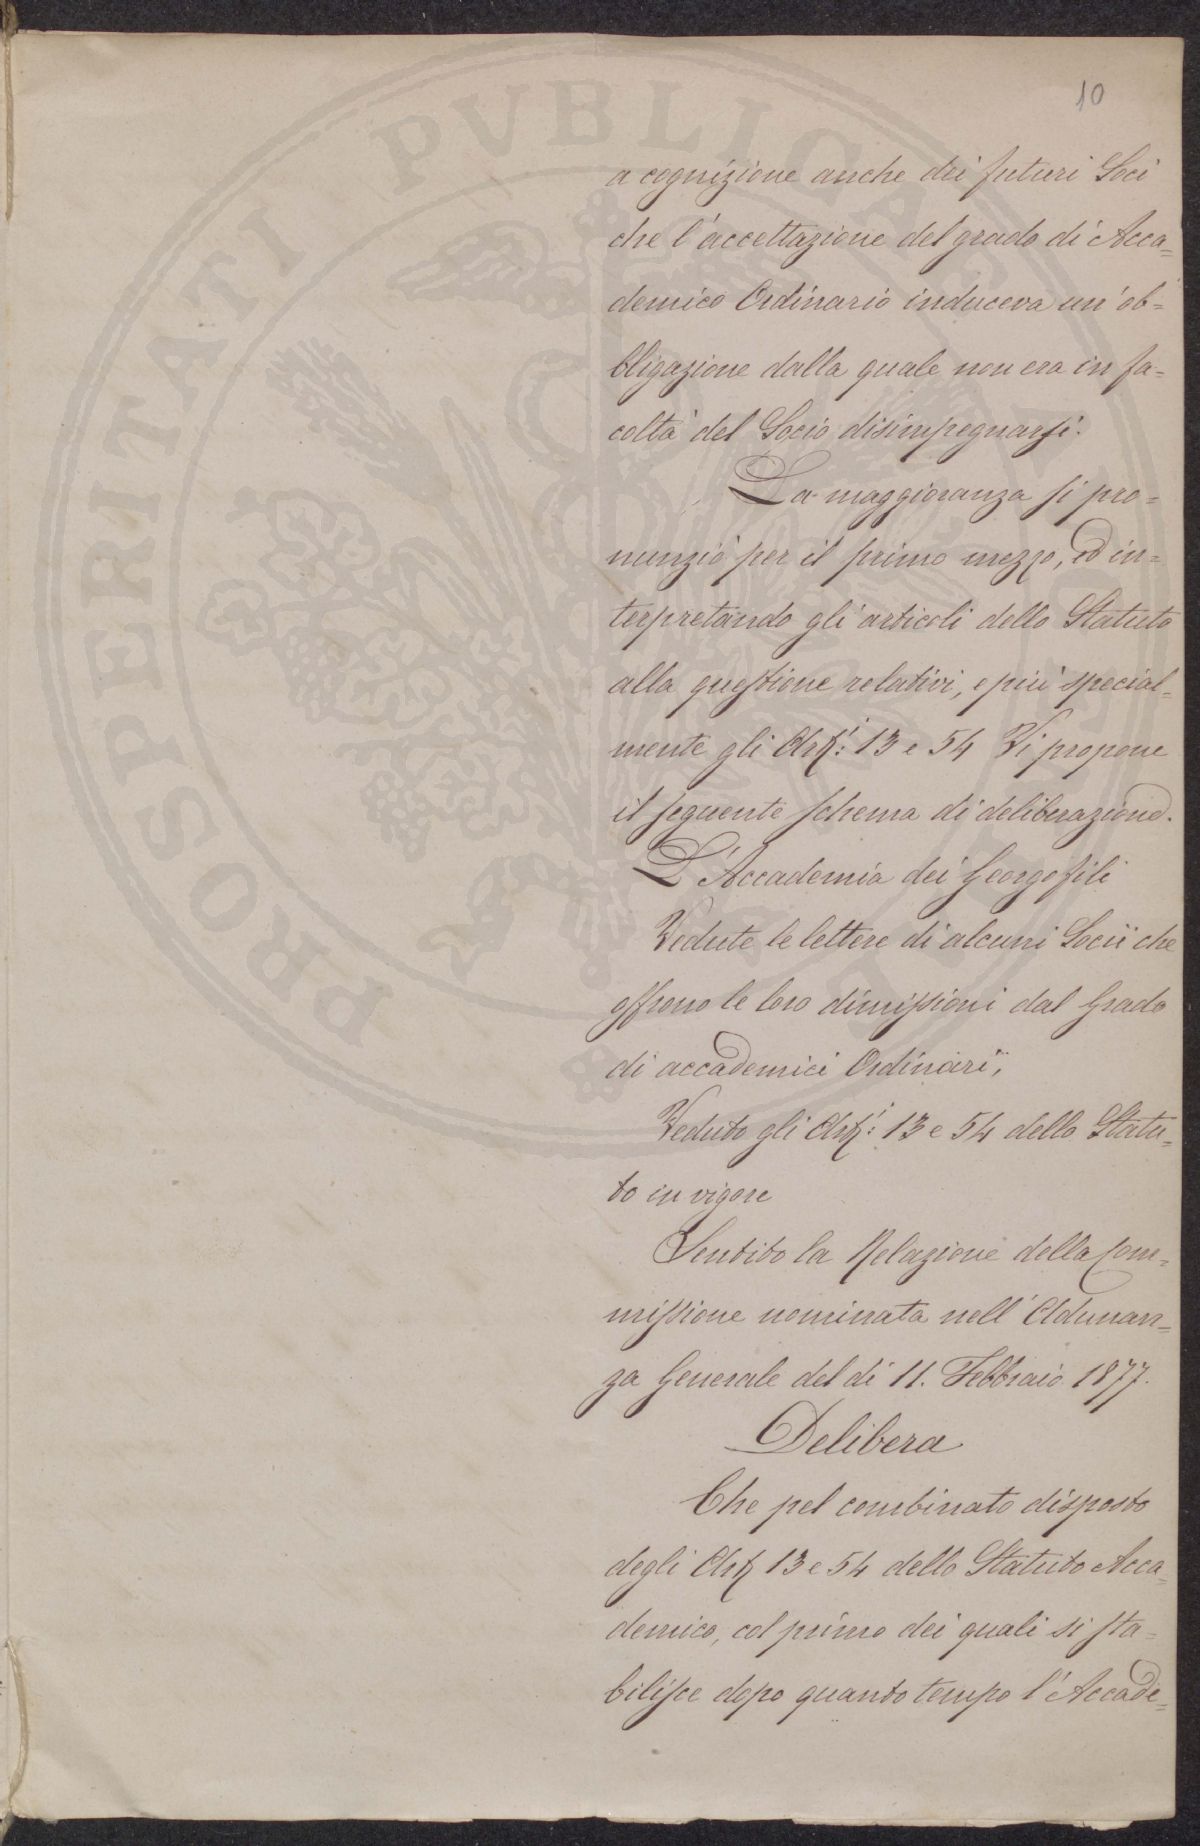 10
a cognizione anche dei futuri Soci
che l'accettazione del grado di Acca=
demico Ordinario induceva un'ob=
bligazione dalla quale non era in fa=
coltà del Socio disimpegnarsi.
La maggioranza si pro=
nunziò per il primo mezzo, ed in=
terpretando gli articoli dello Statuto
alla questione relativi, e più special=
mente gli Arti: 13 e 54 Vi propone
il seguente schema di deliberazione.
L'Accademia dei Georgofili
Vedute le lettere di alcuni Socii che
offrono le loro dimissioni dal Grado
di accademici Ordinarii,
Veduto gli Arti: 13 e 54 dello Statu=
to in vigore
Sentito la Relazione della Com=
missione nominata nell'Adunan=
za Generale del dì 11. Febbraio 1877.
Delibera
Che pel combinato disposto
degli Art 13 e 54 dello Statuto Acca=
demico, col primo dei quali si sta=
bilisce dopo quanto tempo l'Accade=
PROSPERITATI PVBLICAE